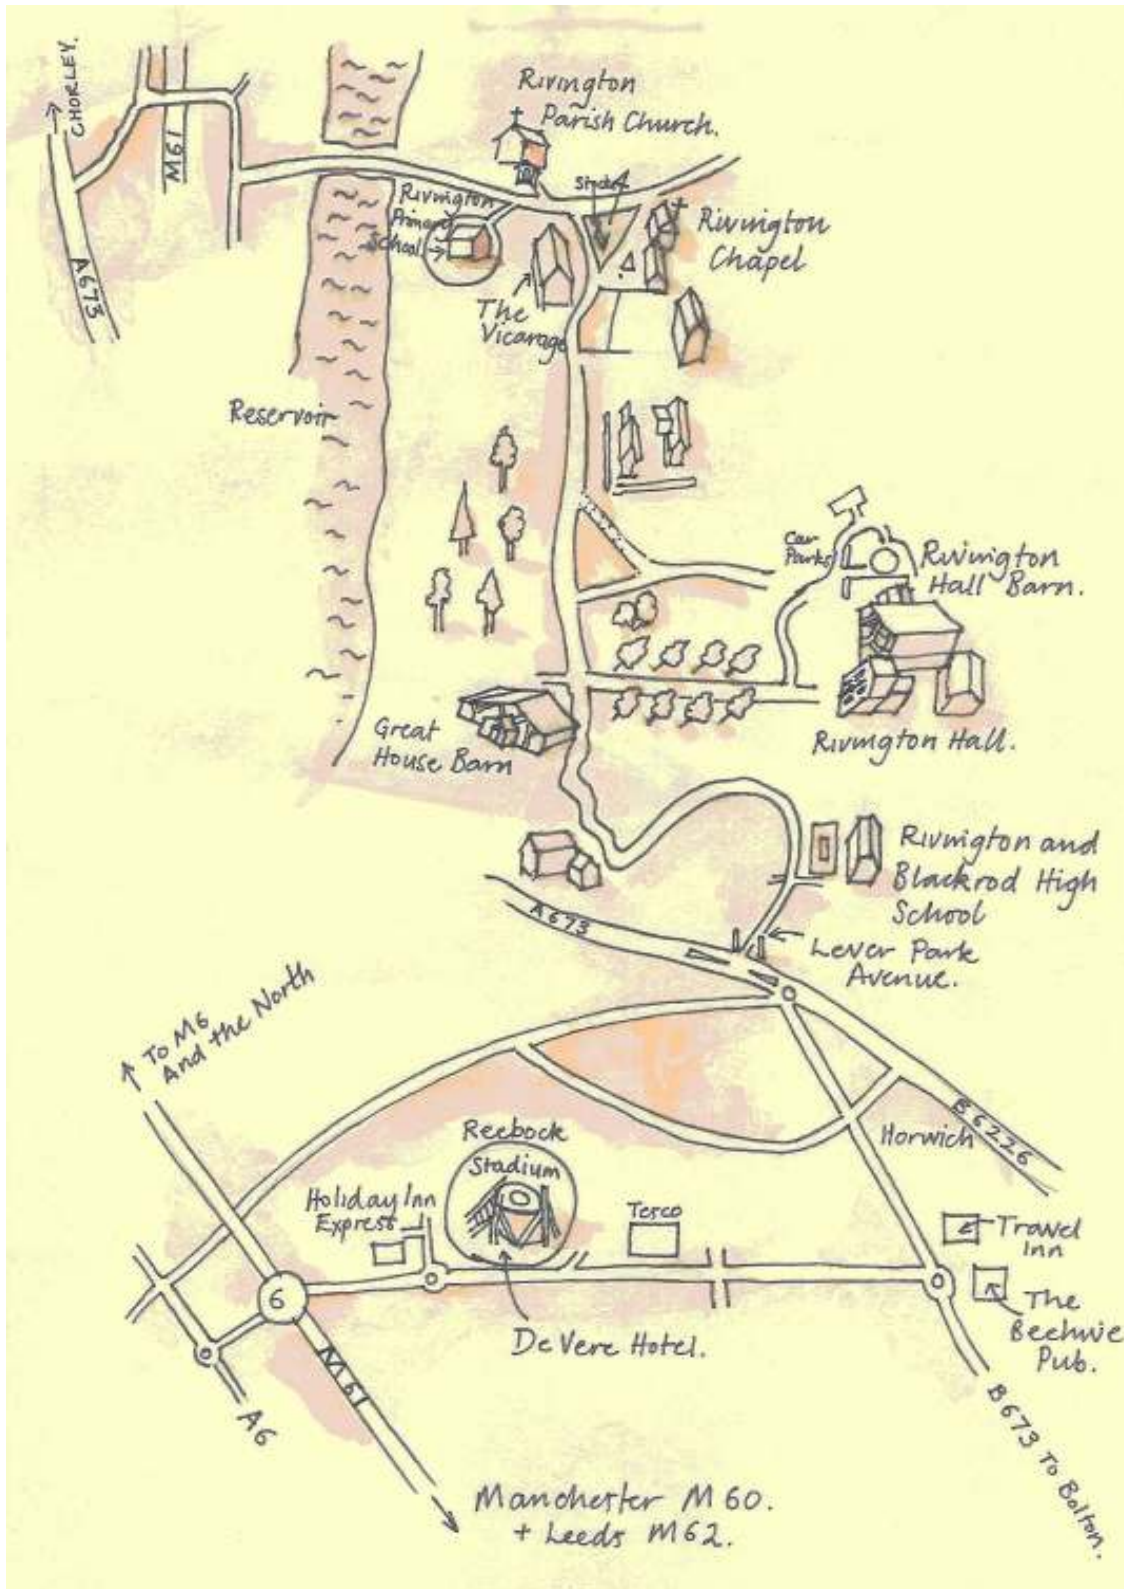 CHORLEY.
M61
A673
Rivington
Parish Church.
Rivington
Primary
School
Rivington
Chapel
The
Vicarage
Reservoir
Car
Parks
Rivington
Hall Barn.
Great
House Barn
Rivington Hall.
Rivington and
Blackrod High
School
A673
Lever Park
Avenue.
To M6
And the North
B6226
Horwich
Reebock
Stadium
Holiday Inn
Express
Tesco
Travel
Inn
6
The
Beehive
Pub.
De Vere Hotel.
M61
A6
B673 To Bolton.
Manchester M60.
+ Leeds M62.